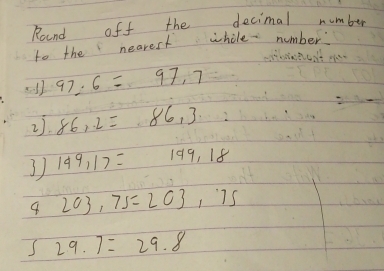 Round off the decimal number
to the nearest whole number.
1) 97.6 = 97,7
2) 86,2 = 86,3
3) 149,17 = 149,18
4 203,75 = 203,75
5 29.7 = 29.8